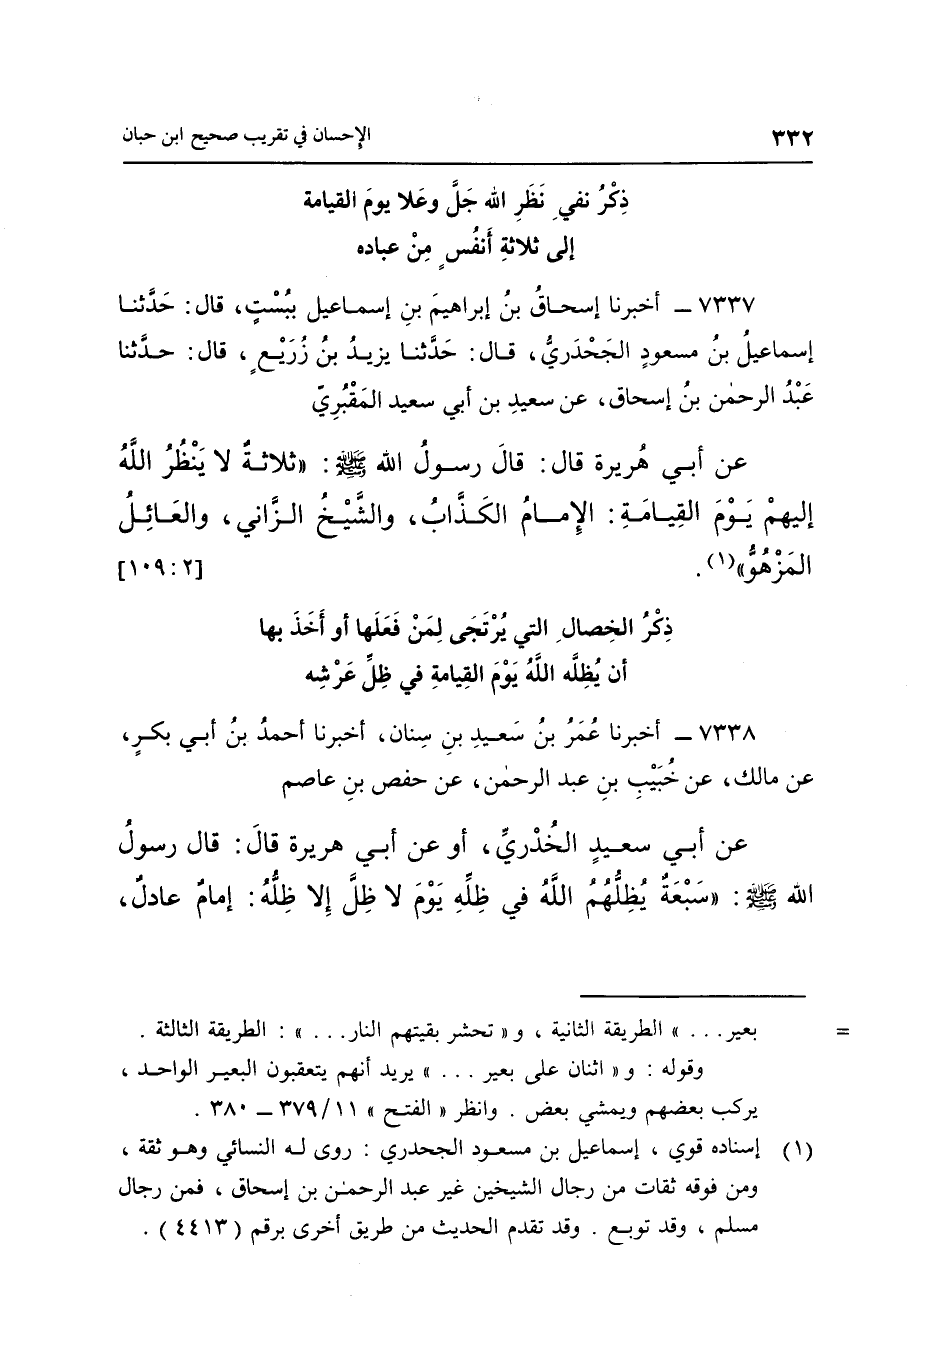 ٣٣٢ الإحسان في تقريب صحيح ابن حبان
ذِكْرُ نفيِ نَظَرِ الله جَلَّ وعَلا يومَ القيامة
إلى ثلاثةِ أَنفُسٍ مِنْ عباده
٧٣٣٧ ـ أخبرنا إسحـاقُ بنُ إبراهيمَ بنِ إسمـاعيل بِبُسْتٍ، قال: حَدَّثنـا
إسماعيلُ بنُ مسعودٍ الجَحْدَريُّ، قـال: حَدَّثنـا يزيـدُ بنُ زُرَيْـعٍ، قال: حـدَّثنا
عَبْدُ الرحمٰن بنُ إسحاق، عن سعيدِ بن أبي سعيد المَقْبُرِيّ
عن أبـي هُريرة قال: قالَ رسـولُ الله ﷺ: «ثلاثـةٌ لا يَنْظُرُ اللَّهُ
إليهمْ يَـوْمَ القِيـامَـةِ: الإِمـامُ الكَـذَّابُ، والشَّيْـخُ الـزَّاني، والعَـائِـلُ
المَزْهُوُّ»(١). [١٠٩:٢]
ذِكْرُ الخِصالِ التي يُرْتَجَى لِمَنْ فَعَلَها أو أَخَذَ بها
أن يُظِلَّه اللَّهُ يَوْمَ القِيامةِ في ظِلِّ عَرْشِه
٧٣٣٨ ـ أخبرنا عُمَرُ بنُ سَعيـدِ بنِ سِنان، أخبرنا أحمدُ بنُ أبـي بكـرٍ،
عن مالك، عن خُبَيْبِ بنِ عبد الرحمٰن، عن حفص بنِ عاصم
عن أبـي سعـيدٍ الخُدْريِّ، أو عن أبـي هريرة قالَ: قال رسولُ
الله ﷺ: «سَبْعَةٌ يُظِلُّهُمُ اللَّهُ في ظِلِّهِ يَوْمَ لا ظِلَّ إلا ظِلُّهُ: إمامٌ عادلٌ،
= بعير. . . » الطريقة الثانية ، و « تحشر بقيتهم النار. . . » : الطريقة الثالثة .
وقوله : و « اثنان على بعير . . . » يريد أنهم يتعقبون البعيـر الواحـد ،
يركب بعضهم ويمشي بعض . وانظر « الفتـح » ٣٧٩/١١ ـ ٣٨٠ .
(١) إسناده قوي ، إسماعيل بن مسعـود الجحدري : روى لـه النسائي وهـو ثقة ،
ومن فوقه ثقات من رجال الشيخين غير عبد الرحمٰـن بن إسحاق ، فمن رجال
مسلم ، وقد توبـع . وقد تقدم الحديث من طريق أخرى برقم ( ٤٤١٣ ) .